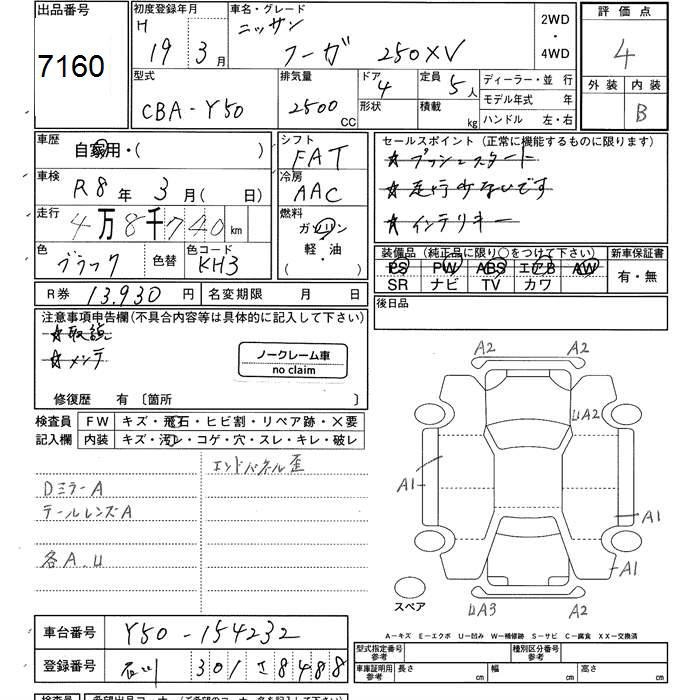 出品番号
7160
初度登録年月
H 19 3月
車名・グレード
ニッサン
フーガ 250XV
2WD
・
4WD
評価点
4
型式
CBA-Y50
排気量
2500 CC
ドア
4
形状
定員
5人
積載
kg
ディーラー・並 行
モデル年式 年
ハンドル 左・右
外装 内装
B
車歴
自家用・( )
シフト
FAT
セールスポイント(正常に機能するものに限ります)
★プッシュスタート
★走行少ないです
★インテリキー
車検
R8年 3月( 日)
冷房
AAC
走行
4万8千740km
燃料
ガソリン
軽・油
( )
色
ブラック
色替
色コード
KH3
装備品(純正品に限り○をつけて下さい)
新車保証書
PS PW ABS エアB AW
有・無
SR ナビ TV カワ
R券 13,930円
名変期限 月 日
後日品
注意事項申告欄(不具合内容等は具体的に記入して下さい)
★取説
★メンテ
ノークレーム車
no claim
修復歴 有〔箇所 〕
検査員
記入欄
FW キズ・飛石・ヒビ割・リペア跡・×要
内装 キズ・汚レ・コゲ・穴・スレ・キレ・破レ
エンドパネル歪
DミラーA
テールレンズA
各A.U
A2 A2
UA2
A1
A1
A1
スペア
UA3 A2
A-キズ E-エクボ U-凹み W-補修跡 S-サビ C-腐食 XX-交換済
車台番号 Y50-154232
登録番号 石川 301 さ 8488
型式指定番号
参考
種別区分番号
参考
車庫証明用
参考
長さ cm 幅 cm 高さ cm